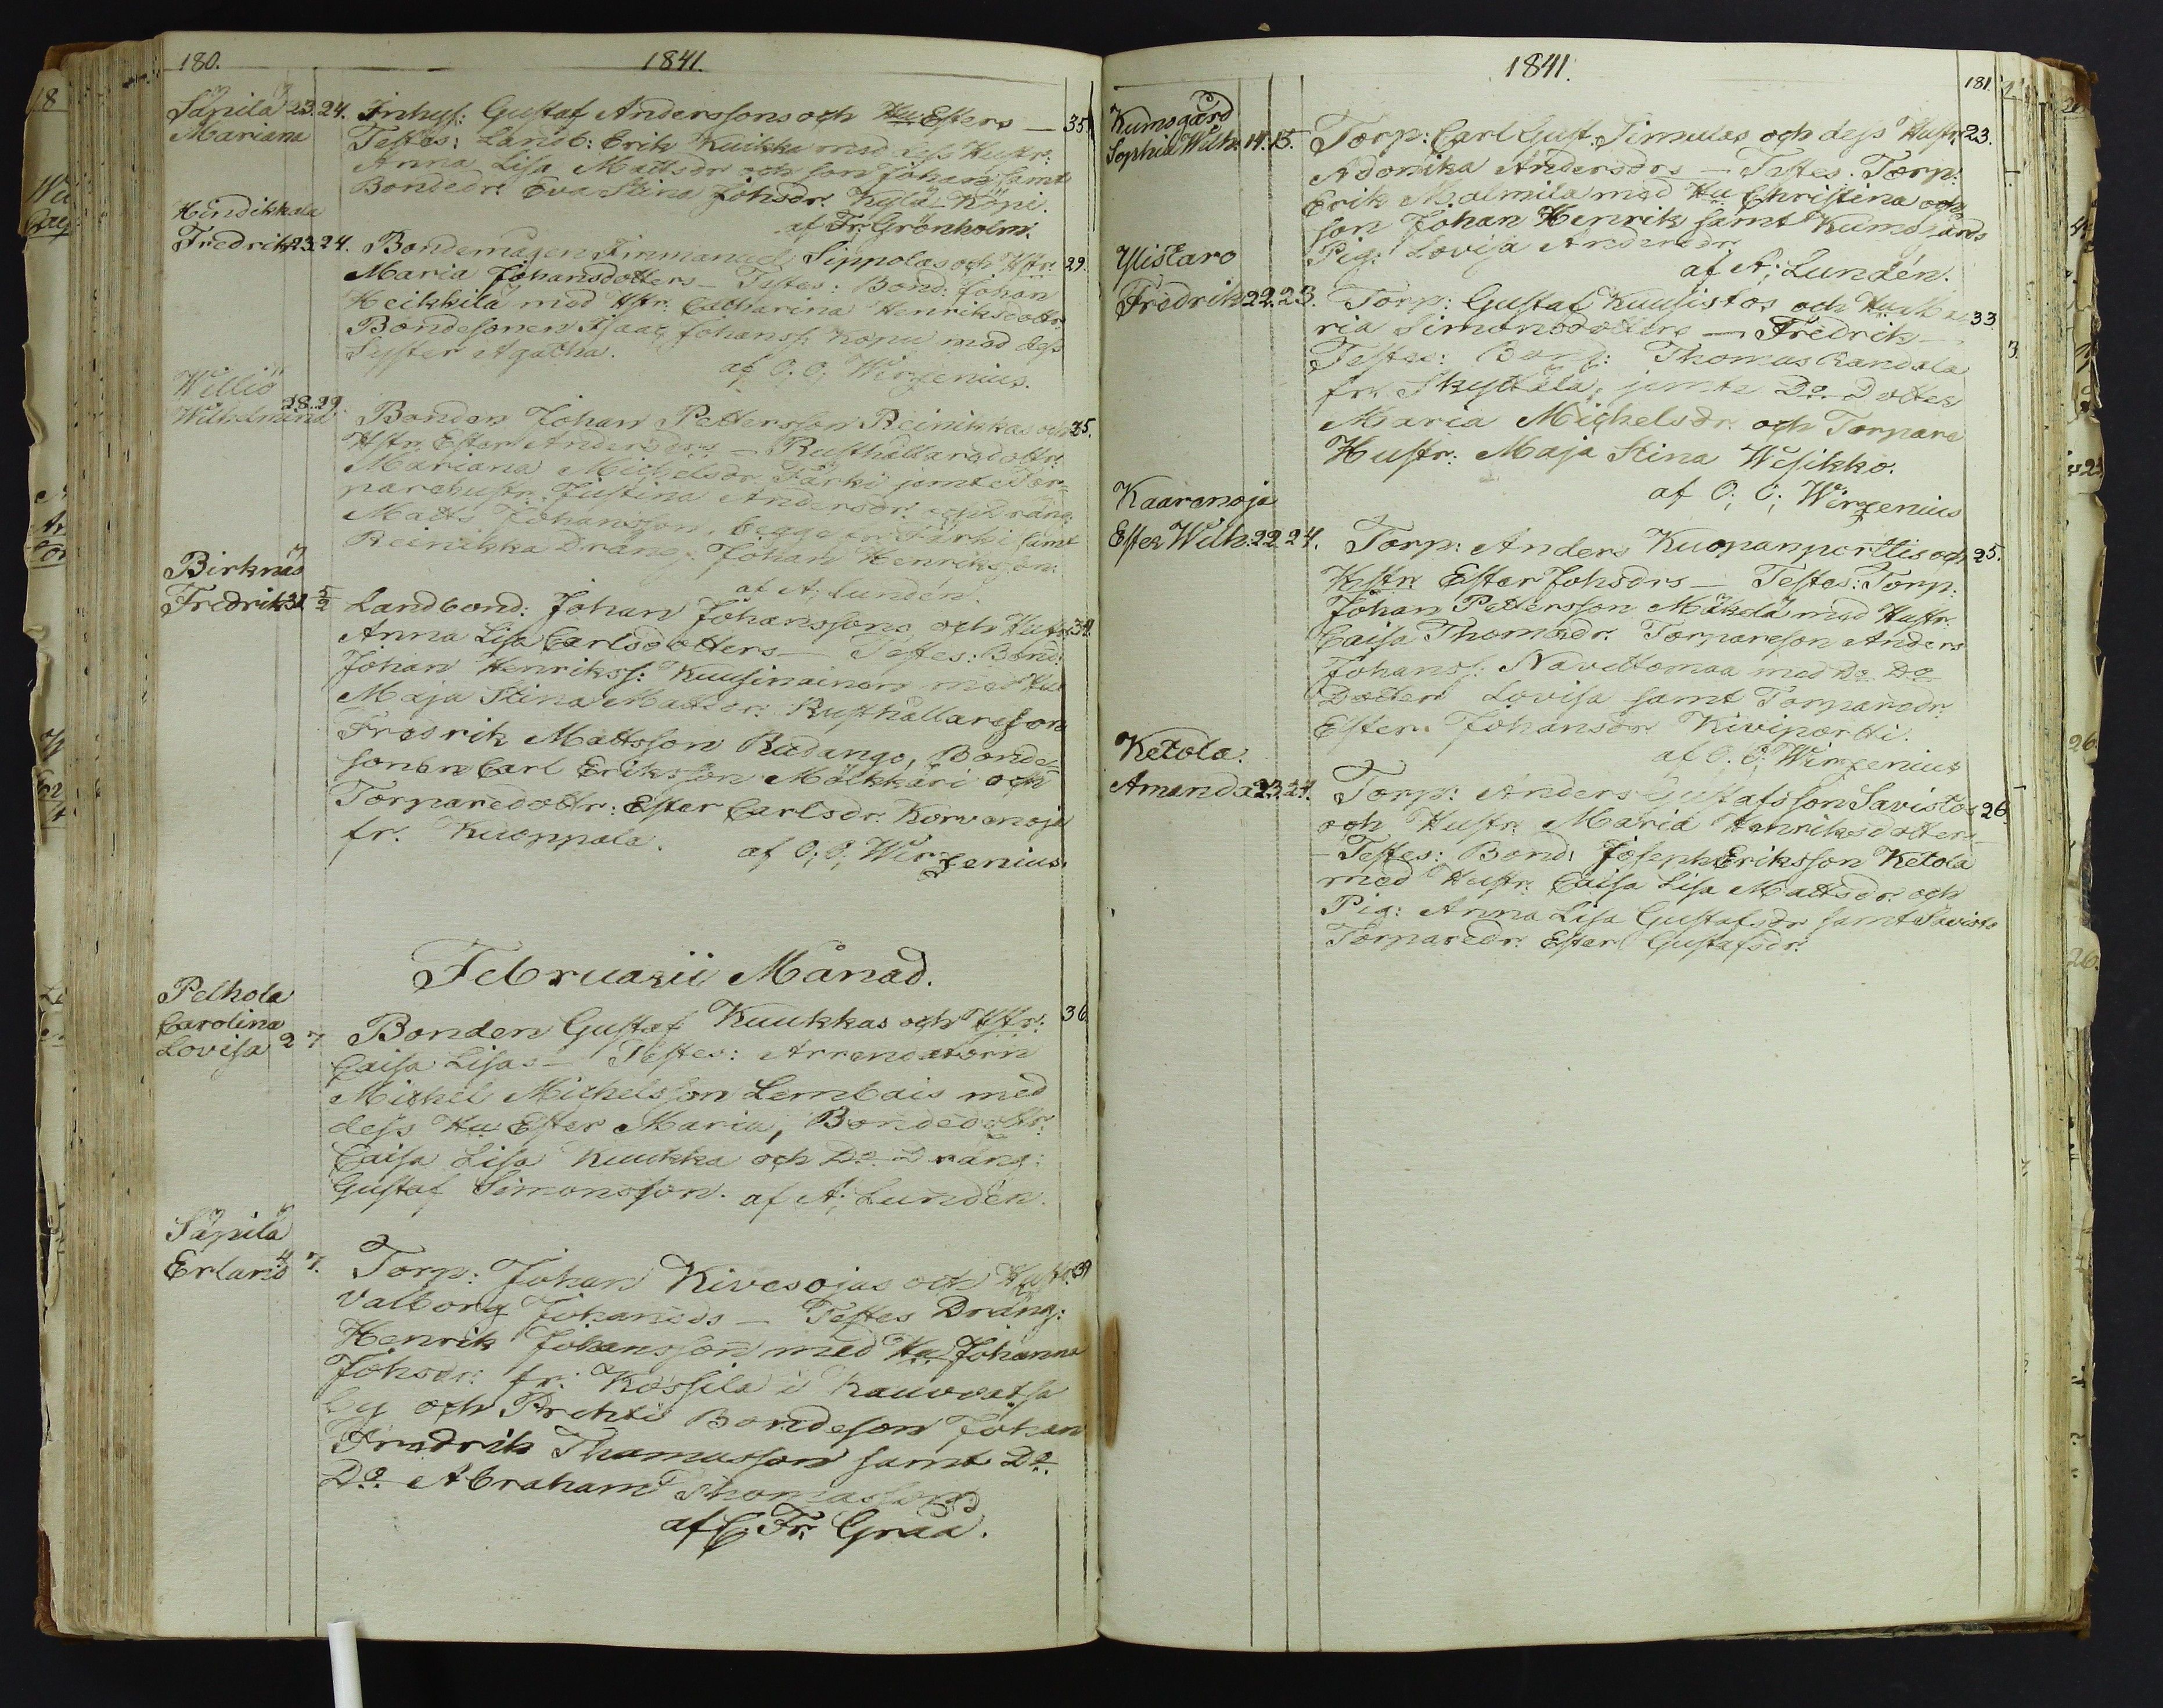 180. 1841.
Säpilä 23. 24. Inhys: Gustaf Anderssons och Hu Esters — 35.
Mariana Testes: Landb: Erik Kuikka med dess Hustr:
Anna Lisa Mattsdr och son Johan samt
Bondedr: Eva Stina Johsdr: Kylä-Köni.
af Fr: Grönholm.
Hindikkala
Fredrik 23. 24. Bondemågen Immanuel Sippolas och Hstr: 29.
Maria Johansdotters — Testes: Bond: Johan
Heikkilä med Hstr: Catharina Henriksdottr
Bondesonen Isaac Johanss: Konu med dess
Syster Agatha.
af O. O. Wirzenius.
Williö
Wilhelmina 28. 29. Bonden Johan Pettersson Reinikkas och 25.
Hstr: Ester Andersdrs — Rusthållaredottr:
Mariana Michelsdr Färki jemte Tor-
parehustr: Justina Andersdr: och dräng:
Matts Johansson, begge fr Färki samt
Reinikka Dräng: Johan Henriksson.
af A; Lundén.
Birknäs
Fredrik 31. 5/2 Landbond: Johan Johanssons och Hustr: 34.
Anna Lisa Carlsdotters — Testes: Bond:
Johan Henrikss: Kuusinainen med Hu
Maja Stina Mattsdr: Rusthållaresson
Fredrik Mattsson Rudango, Bonde-
sonen Carl Eriksson Mölkkäri och
Torparedottr: Ester Carlsdr: Korvenoja
fr. Kuoppala.
af O; O; Wirzenius.
Februarii Månad.
Pelhola
Carolina
Lovisa 2 7 Bonden Gustaf Kuukkas och Hstr: 36.
Caisa Lisas — Testes: Arrendatorn
Michel Michelsson Lembois med
dess Hu Ester Maria, Bondedottr:
Caisa Lisa Kuukka och Do Dräng:
Gustaf Simonsson. af A; Lundén.
Säpilä
Erland 4 7. Torp: Johan Kivesojas och Hustr: 39
Valborg Johansds — Testes Dräng:
Henrik Johansson med Hu Johanna
Johsdr: fr: Kossila i Kauvatsa
by och Prihti Bondeson Johan
Fredrik Thomasson samt Do
Do Abraham Thomasson
af C. Fr: Graa.
1841. 181.
Kumogård
Sophia Wilh: 14. 15. Torp: Carl Gust: Simulas och dess Hustr: 23.
Adonika Andersdrs — Testes: Torp:
Erik Malmila med Hu Christina och
son Johan Henrik samt Kumogårds
Pig: Lovisa Andersdr
af A; Lundén.
Ylistaro
Fredrik 22. 23. Torp: Gustaf Kuusistos och Hu Ma- 33.
ria Simonsdotters — Fredrik —
Testes: Bond: Thomas Randala
fr. Skyttälä, jemte Do Dotter
Maria Michelsdr. och Torpare
Hustr: Maja Stina Wesikko.
af O; O; Wirzenius
Kaarenoja
Ester Wilh: 22 24. Torp: Anders Kuopanporttis och 25.
Hstr Ester Johsdrs — Testes: Torp:
Johan Pettersson Mäkelä med Hustr:
Caisa Thomasdr: Torpareson Anders
Johanss: Navettomaa med Do Do
Dotter Lovisa samt Torparedr:
Ester Johansdr Kiviportti.
af O. O; Wirzenius
Ketola.
Amanda 23. 24. Torp: Anders Gustafsson Savistos 26.
och Hustr: Maria Henriksdotters
— Testes: Bond: Joseph Eriksson Ketola
med Hustr: Caisa Lisa Mattsdr: och
Pig: Anna Lisa Gustafsdr samt Savisto
Torparedr: Ester Gustafsdr: